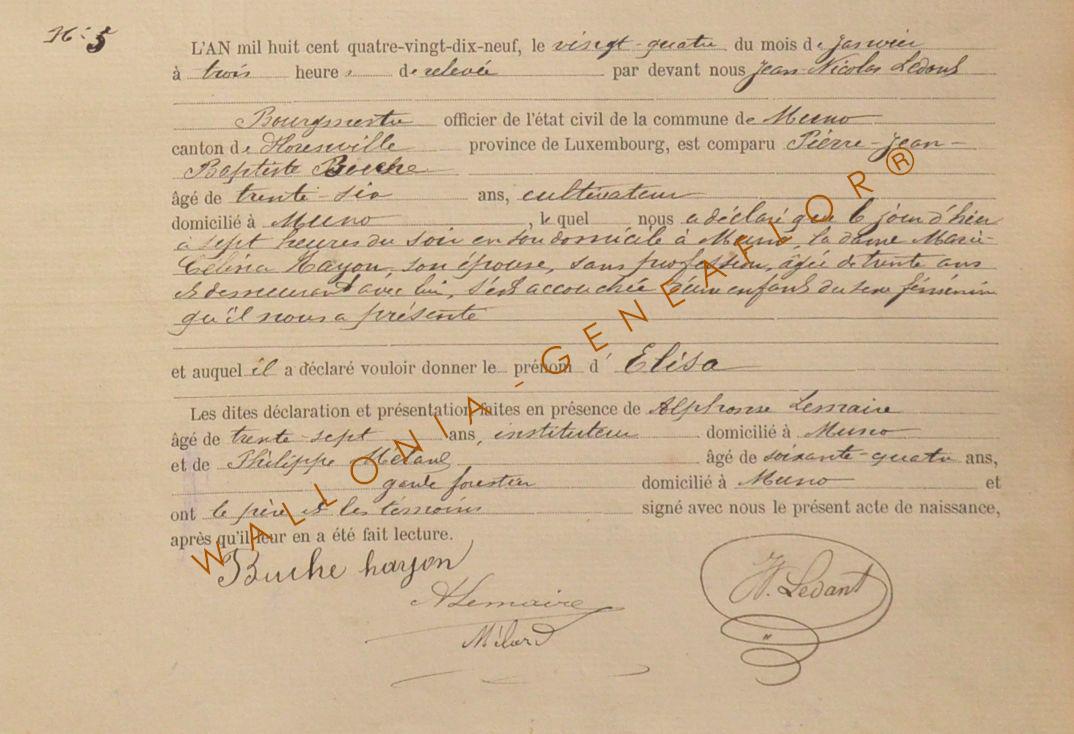 N° 5
L'AN mil huit cent quatre-vingt-dix-neuf, le vingt-quatre du mois de Janvier
à trois heures de relevée par devant nous Jean-Nicolas Ledant
Bourgmestre officier de l'état civil de la commune de Muno
canton de Florenville province de Luxembourg, est comparu Pierre-Jean-
Baptiste Buche
âgé de trente-six ans, cultivateur
domicilié à Muno, lequel nous a déclaré que le jour d'hier
à sept heures du soir en son domicile à Muno, la dame Marie-
Célina Hayon, son épouse, sans profession, âgée de trente ans
et demeurant avec lui, s'est accouchée d'une enfant du sexe féminin
qu'il nous a présenté
et auquel il a déclaré vouloir donner le prénom d'Elisa
Les dites déclaration et présentation faites en présence de Alphonse Lemaire
âgé de trente-sept ans, instituteur domicilié à Muno
et de Philippe Mélard âgé de soixante-quatre ans,
garde forestier domicilié à Muno et
ont le père et les témoins signé avec nous le présent acte de naissance,
après qu'il leur en a été fait lecture.
Buche hayon
ALemaire
Mélard
N. Ledant
WALLONIA-GENEAFLOR®